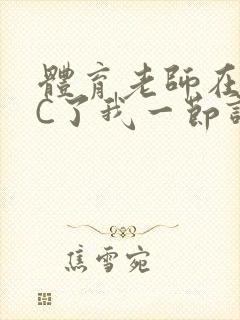 體育老師在
C了我一節
焦雪宛